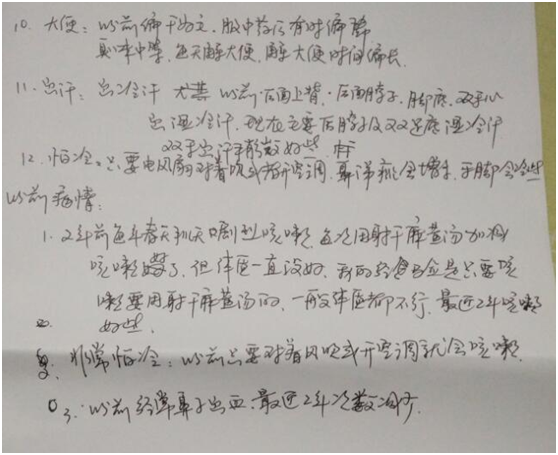 10. 大便：以前偏干为主，服中药后有时偏稀
每天解大便，解大便时间偏长．
11. 出汗：出冷汗 尤其以前后面上背．后面脖子．脚底．双手心
出湿冷汗．现在主要后脖子及双足底湿冷汗
双手出汗稍微好些
12. 怕冷：只要电风扇对着吹或者开空调．鼻涕就会增多．手脚会冷些
以前病情：
1. 2年前每年春天秋天剧烈咳嗽．每次用射干麻黄汤加减
咳嗽好了．但体质一直没好．我的经验是只要咳
嗽要用射干麻黄汤的，一般体质都不行．最近2年咳嗽
好些．
2. 非常怕冷：以前只要对着风吹或开空调就会咳嗽．
3. 以前经常鼻子出血．最近2年次数减少．